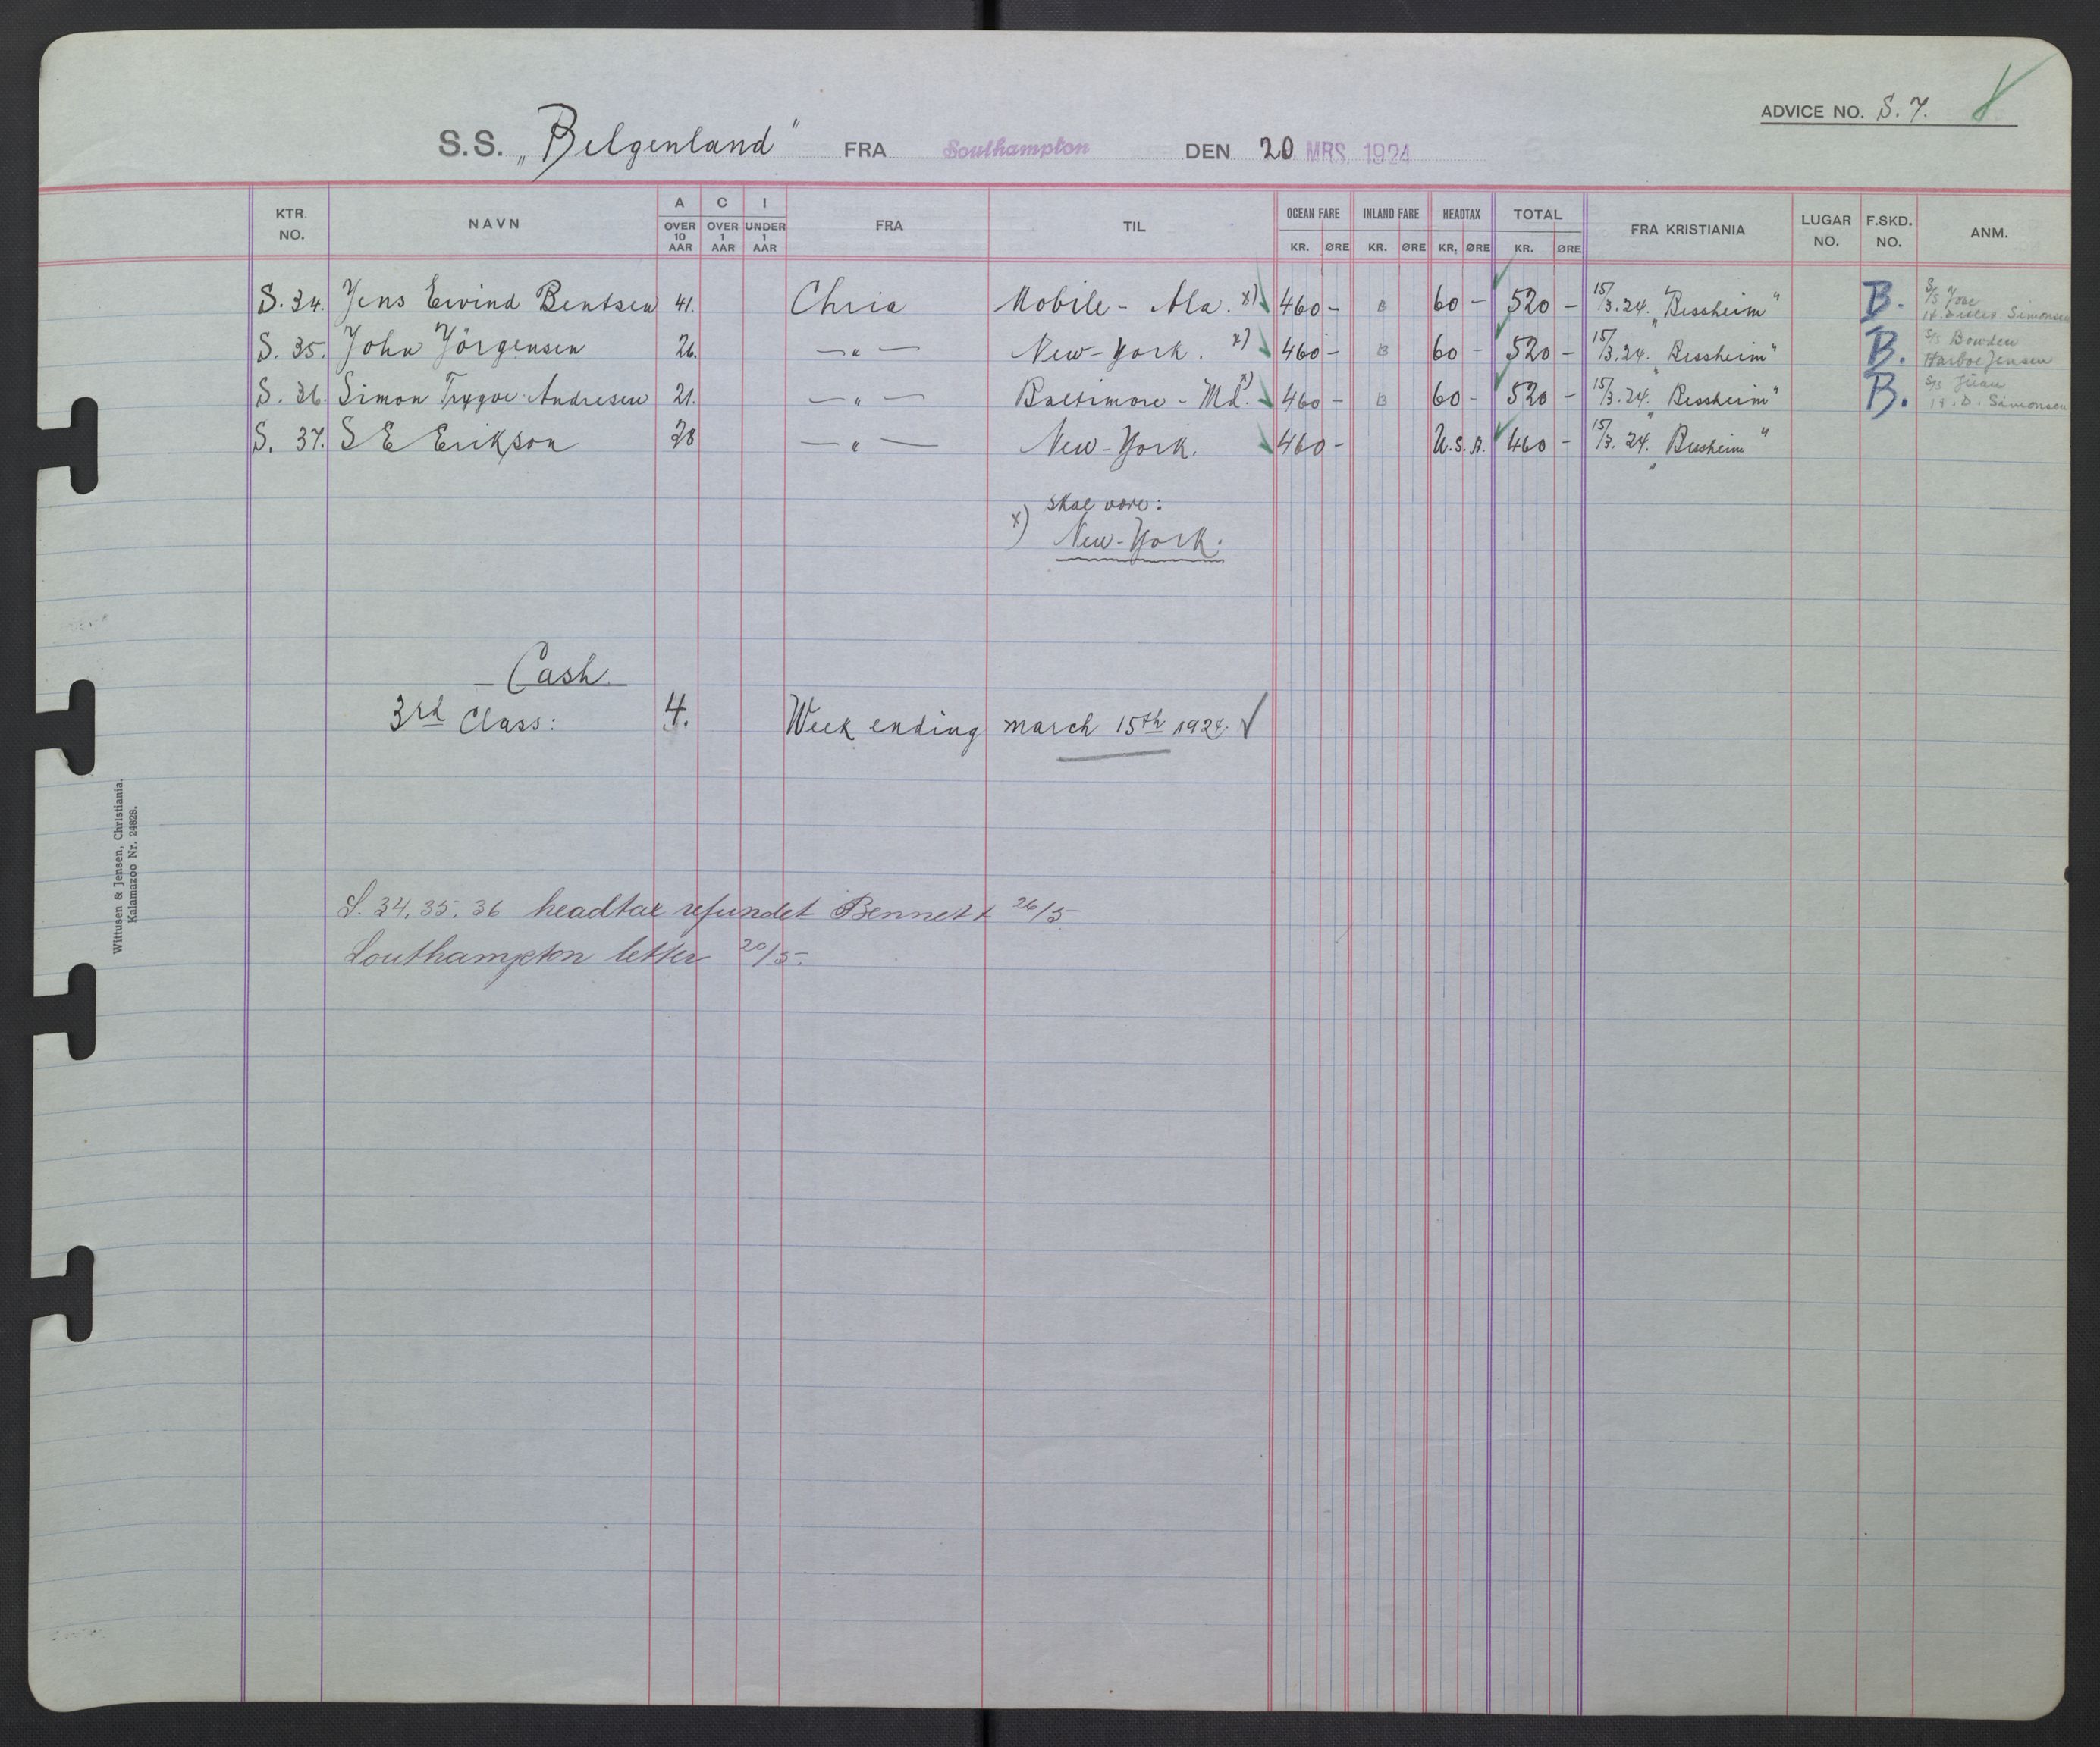 ADVICE NO. S. 7.
S.S. „Belgenland" FRA Southampton DEN 20 MRS. 1924
KTR. NO. NAVN A OVER 10 AAR C OVER 1 AAR I UNDER 1 AAR FRA TIL OCEAN FARE KR. ØRE INLAND FARE KR. ØRE HEADTAX KR. ØRE TOTAL KR. ØRE FRA KRISTIANIA LUGAR NO. F.SKD. NO. ANM.
S. 34. Jens Eivind Bentsen 41. Chria Mobile - Ala. x) 460 - B 60 - 520 - 15/3. 24. „Bessheim" B. S/S Jose Simonsen
S. 35. John Jörgensen 26. — " — New-York. x) 460 - B 60 - 520 - 15/3. 24. „Bessheim" B. S/S Bowden Harboe Jensen
S. 36. Simon Trygve Andresen 21. — " — Baltimore - Md. x) 460 - B 60 - 520 - 15/3. 24. „Bessheim" B. S/S Juan H. D. Simonsen
S. 37. S E Erikson 28 — " — New-York. 460 - U.S.A. 460 - 15/3. 24. „Bessheim"
x) skal være:
New-York.
Cash
3rd Class: 4. Week ending march 15th 1924. √
S. 34, 35, 36 headtax refundet Bennett 26/5
Southampton letter 20/5.
Wittusen & Jensen, Christiania.
Kalamazoo Nr. 24828.